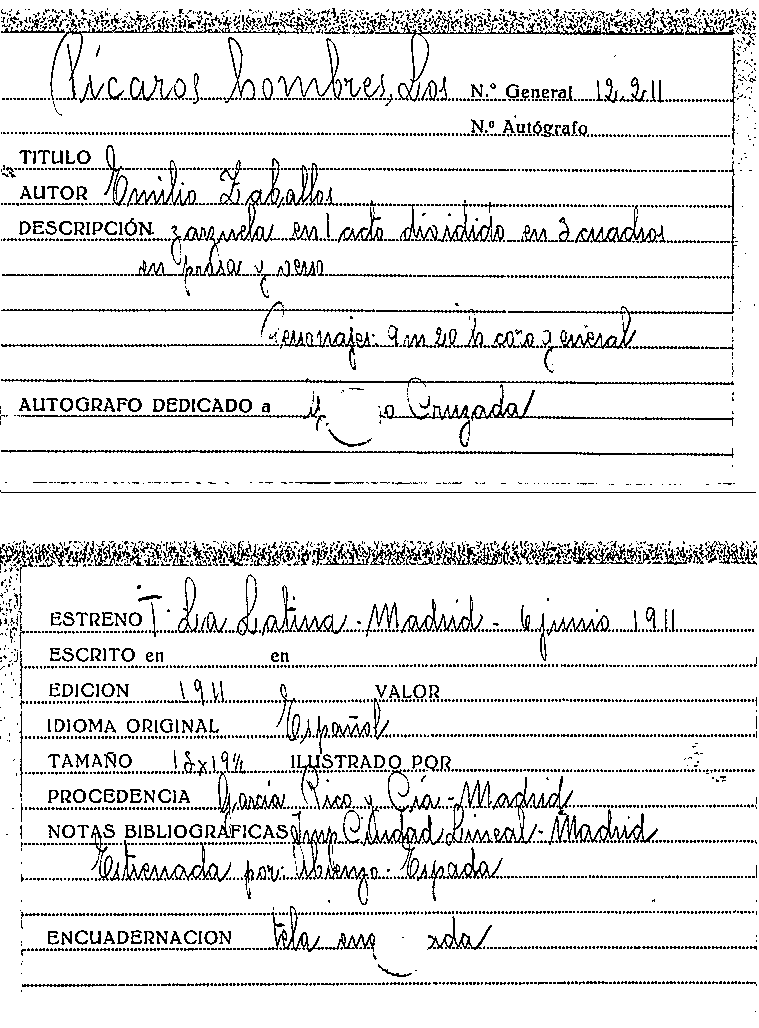 Pícaros hombres, Los N.º General 12.211
N.º Autógrafo
TITULO
AUTOR Emilio Zaballos
DESCRIPCIÓN zarzuela en 1 acto dividido en 3 cuadros
en prosa y verso
Personajes: 9 m 20 h coro general
AUTOGRAFO DEDICADO a Cruzada
ESTRENO T. La Latina - Madrid - 6 junio 1911
ESCRITO en en
EDICION 1911 VALOR
IDIOMA ORIGINAL Español
TAMAÑO ILUSTRADO POR
PROCEDENCIA García Rico y Cía - Madrid
NOTAS BIBLIOGRAFICAS Imp Ciudad Lineal - Madrid
Estrenada por: Espada
ENCUADERNACION tela